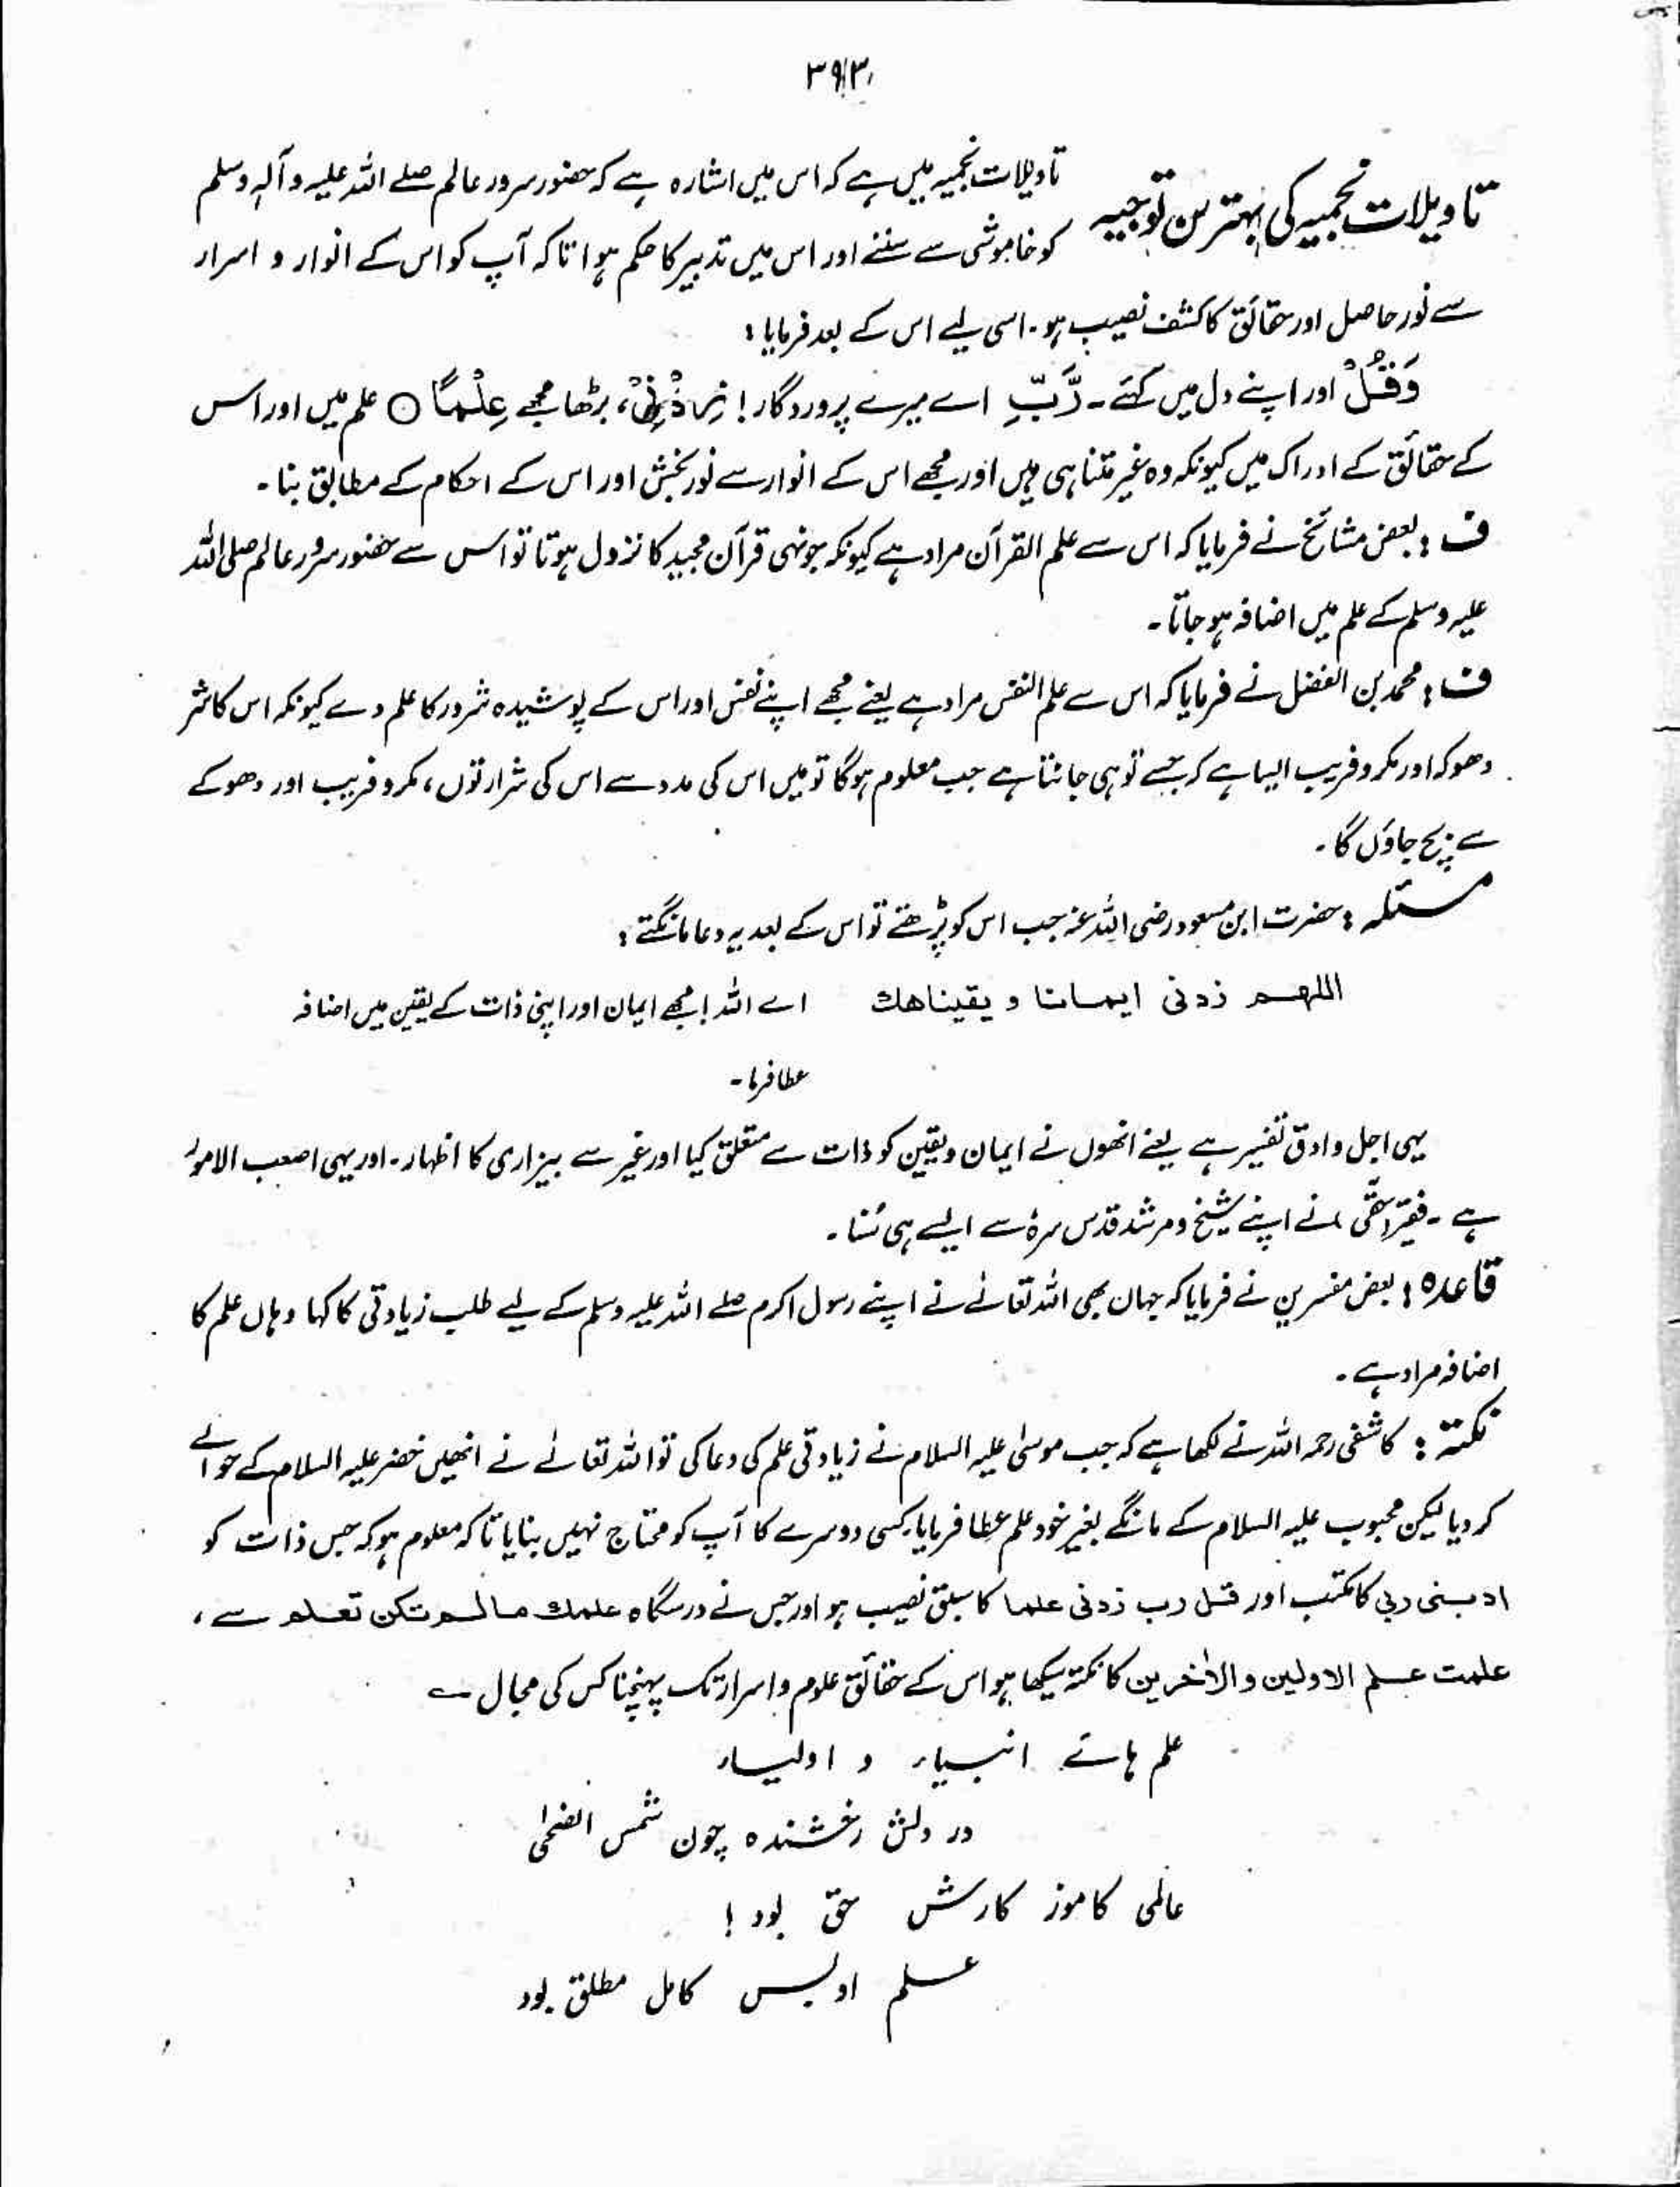 ۳۹۳
تاویلات نجمیہ کی بہترین توجیہ
تاویلات نجمیہ میں ہے کہ اس میں اشارہ ہے کہ حضور سرور عالم صلے اللہ علیہ وآلہٖ وسلم
کو خاموشی سے سننے اور اس میں تدبیر کا حکم ہوا تاکہ آپ کو اس کے انوار و اسرار
سے نور حاصل اور حقائق کا کشف نصیب ہو۔ اسی لیے اس کے بعد فرمایا :
وَقُلْ اور اپنے دل میں کہئے۔ رَّبِّ اے میرے پروردگار! زِدْنِیْ، بڑھا مجھے عِلْمًا ○ علم میں اور اس
کے حقائق کے ادراک میں کیونکہ وہ غیر متناہی ہیں اور مجھے اس کے انوار سے نور بخش اور اس کے احکام کے مطابق بنا۔
ف : بعض مشائخ نے فرمایا کہ اس سے علم القرآن مراد ہے کیونکہ جونہی قرآن مجید کا نزول ہوتا تو اس سے حضور سرور عالم صلی اللہ
علیہ وسلم کے علم میں اضافہ ہو جاتا۔
ف : محمد بن الفضل نے فرمایا کہ اس سے علم النفس مراد ہے یعنے مجھے اپنے نفس اور اس کے پوشیدہ شرور کا علم دے کیونکہ اس کا شر
دھوکہ اور مکر و فریب ایسا ہے کہ جسے تو ہی جانتا ہے جب معلوم ہوگا تو میں اس کی مدد سے اس کی شرارتوں، مکر و فریب اور دھوکے
سے بچ جاؤں گا۔
مسئلہ : حضرت ابن مسعود رضی اللہ عنہ جب اس کو پڑھتے تو اس کے بعد یہ دعا مانگتے :
اللهم زدنی ایمانا و یقیناهك اے اللہ! مجھے ایمان اور اپنی ذات کے یقین میں اضافہ
عطا فرما۔
یہی اجل و ادق تفسیر ہے یعنے انھوں نے ایمان و یقین کو ذات سے متعلق کیا اور غیر سے بیزاری کا اظہار۔ اور یہی اصعب الامور
ہے۔ فقیر (حقی) نے اپنے شیخ و مرشد قدس سرہٗ سے ایسے ہی سُنا۔
قاعدہ : بعض مفسرین نے فرمایا کہ جہان بھی اللہ تعالےٰ نے اپنے رسول اکرم صلے اللہ علیہ وسلم کے لیے طلب زیادتی کا کہا وہاں علم کا
اضافہ مراد ہے۔
نکتہ : کاشفی رحمہ اللہ نے لکھا ہے کہ جب موسیٰ علیہ السلام نے زیادتی علم کی دعا کی تو اللہ تعالےٰ نے انھیں خضر علیہ السلام کے حوالے
کر دیا لیکن محبوب علیہ السلام کے مانگے بغیر خود علم عطا فرمایا، کسی دوسرے کا آپ کو محتاج نہیں بنایا تاکہ معلوم ہو کہ جس ذات کو
ادبنی ربی کا مکتب اور قل رب زدنی علما کا سبق نصیب ہو اور جس نے درسگاہ علمك مالم تكن تعلم سے،
علمت علم الاولین والاٰخرین کا نکتہ سیکھا ہو اس کے حقائق علوم و اسرار تک پہنچنا کس کی مجال ؎
علم ہائے انبیاء و اولیاء
در دلش رخشندہ چون شمس الضحٰی
عالمی کاموز کارش حق بود !
علم او بس کامل مطلق بود